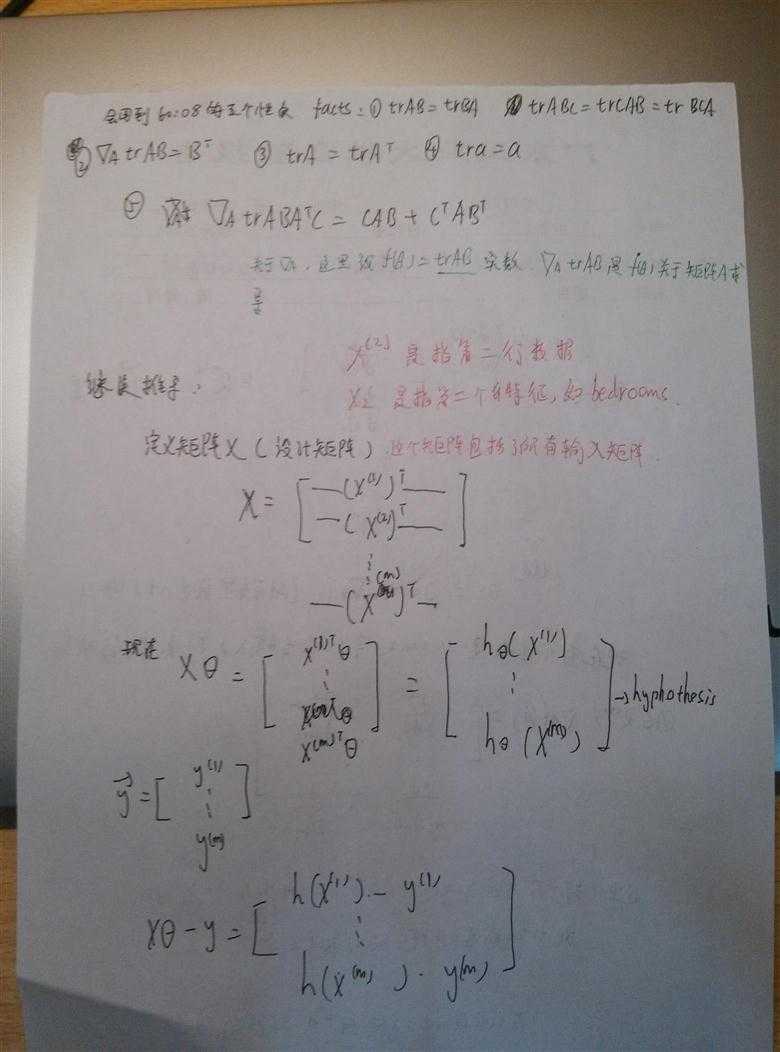 会用到 60:08 的五个性质 facts: ① trAB = trBA trABC = trCAB = tr BCA
② ∇A trAB = Bᵀ ③ trA = trAᵀ ④ tra = a
⑤ ∇A trABAᵀC = CAB + CᵀABᵀ
关于∇A, 这里设 f(A) = trAB 实数. ∇A trAB 是 f(A) 关于矩阵A求
导
X⁽²⁾ 是指第二行数据
继续推导:
X₂ 是指第二个特征, 如 bedrooms.
定义矩阵X (设计矩阵). 这个矩阵包括了所有输入矩阵.
X = [ —(X⁽¹⁾)ᵀ— ]
—(X⁽²⁾)ᵀ—
⋮
—(X⁽ᵐ⁾)ᵀ—
现在 Xθ = [ X⁽¹⁾ᵀθ ⋮ X⁽ᵐ⁾ᵀθ ] = [ hθ(X⁽¹⁾) ⋮ hθ(X⁽ᵐ⁾) ] → hyphothesis
y⃗ = [ y⁽¹⁾ ⋮ y⁽ᵐ⁾ ]
Xθ - y = [ h(X⁽¹⁾) - y⁽¹⁾ ⋮ h(X⁽ᵐ⁾) - y⁽ᵐ⁾ ]